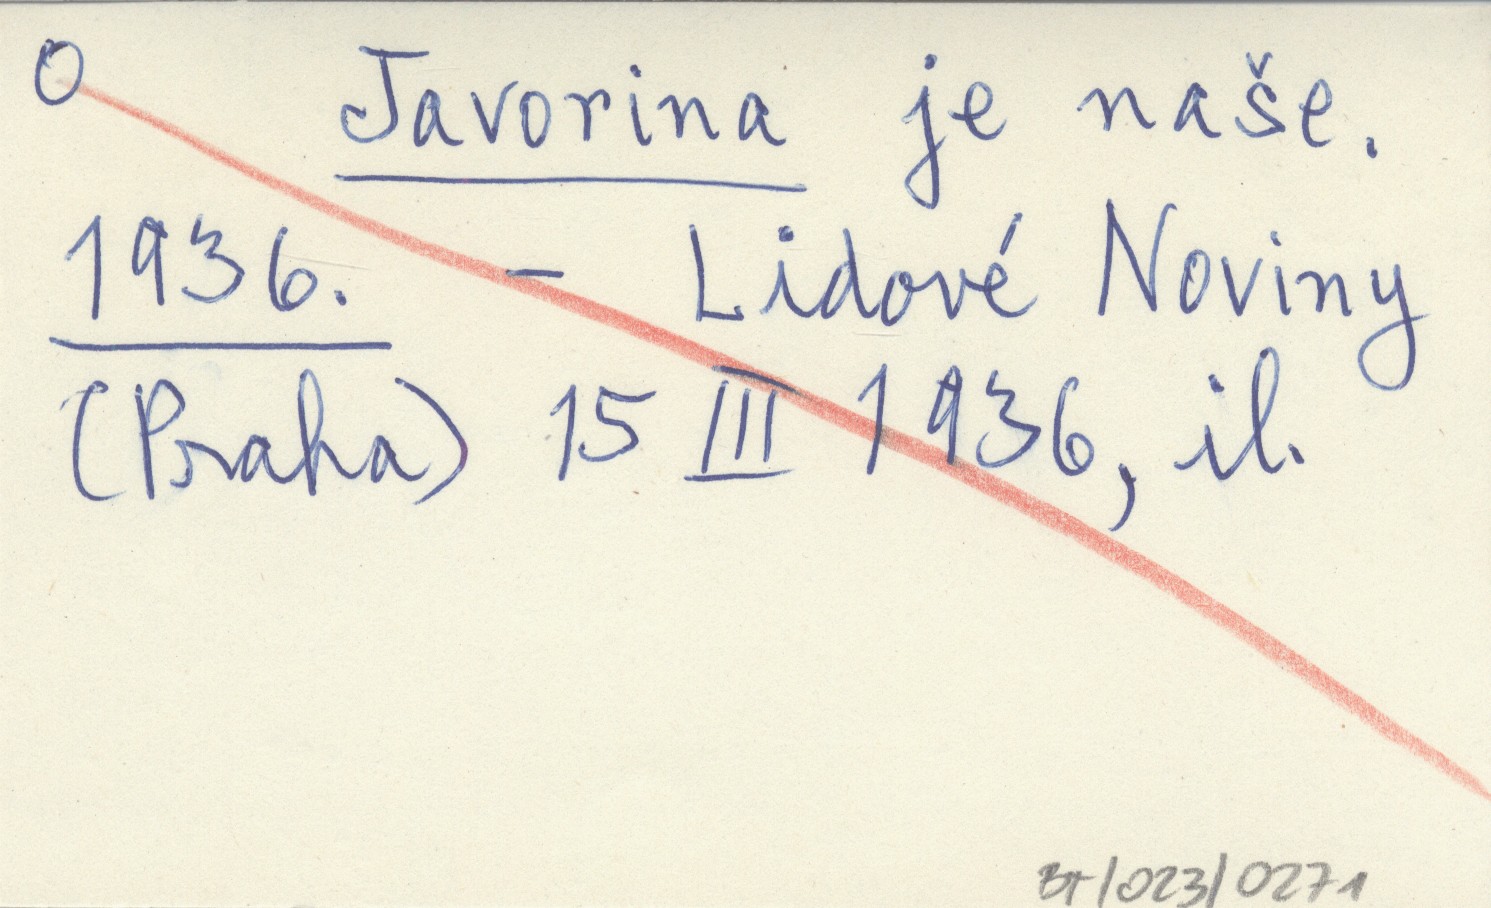 O Javorina je naše.
1936. - Lidové Noviny
(Praha) 15 III 1936, il.
BT/023/0271